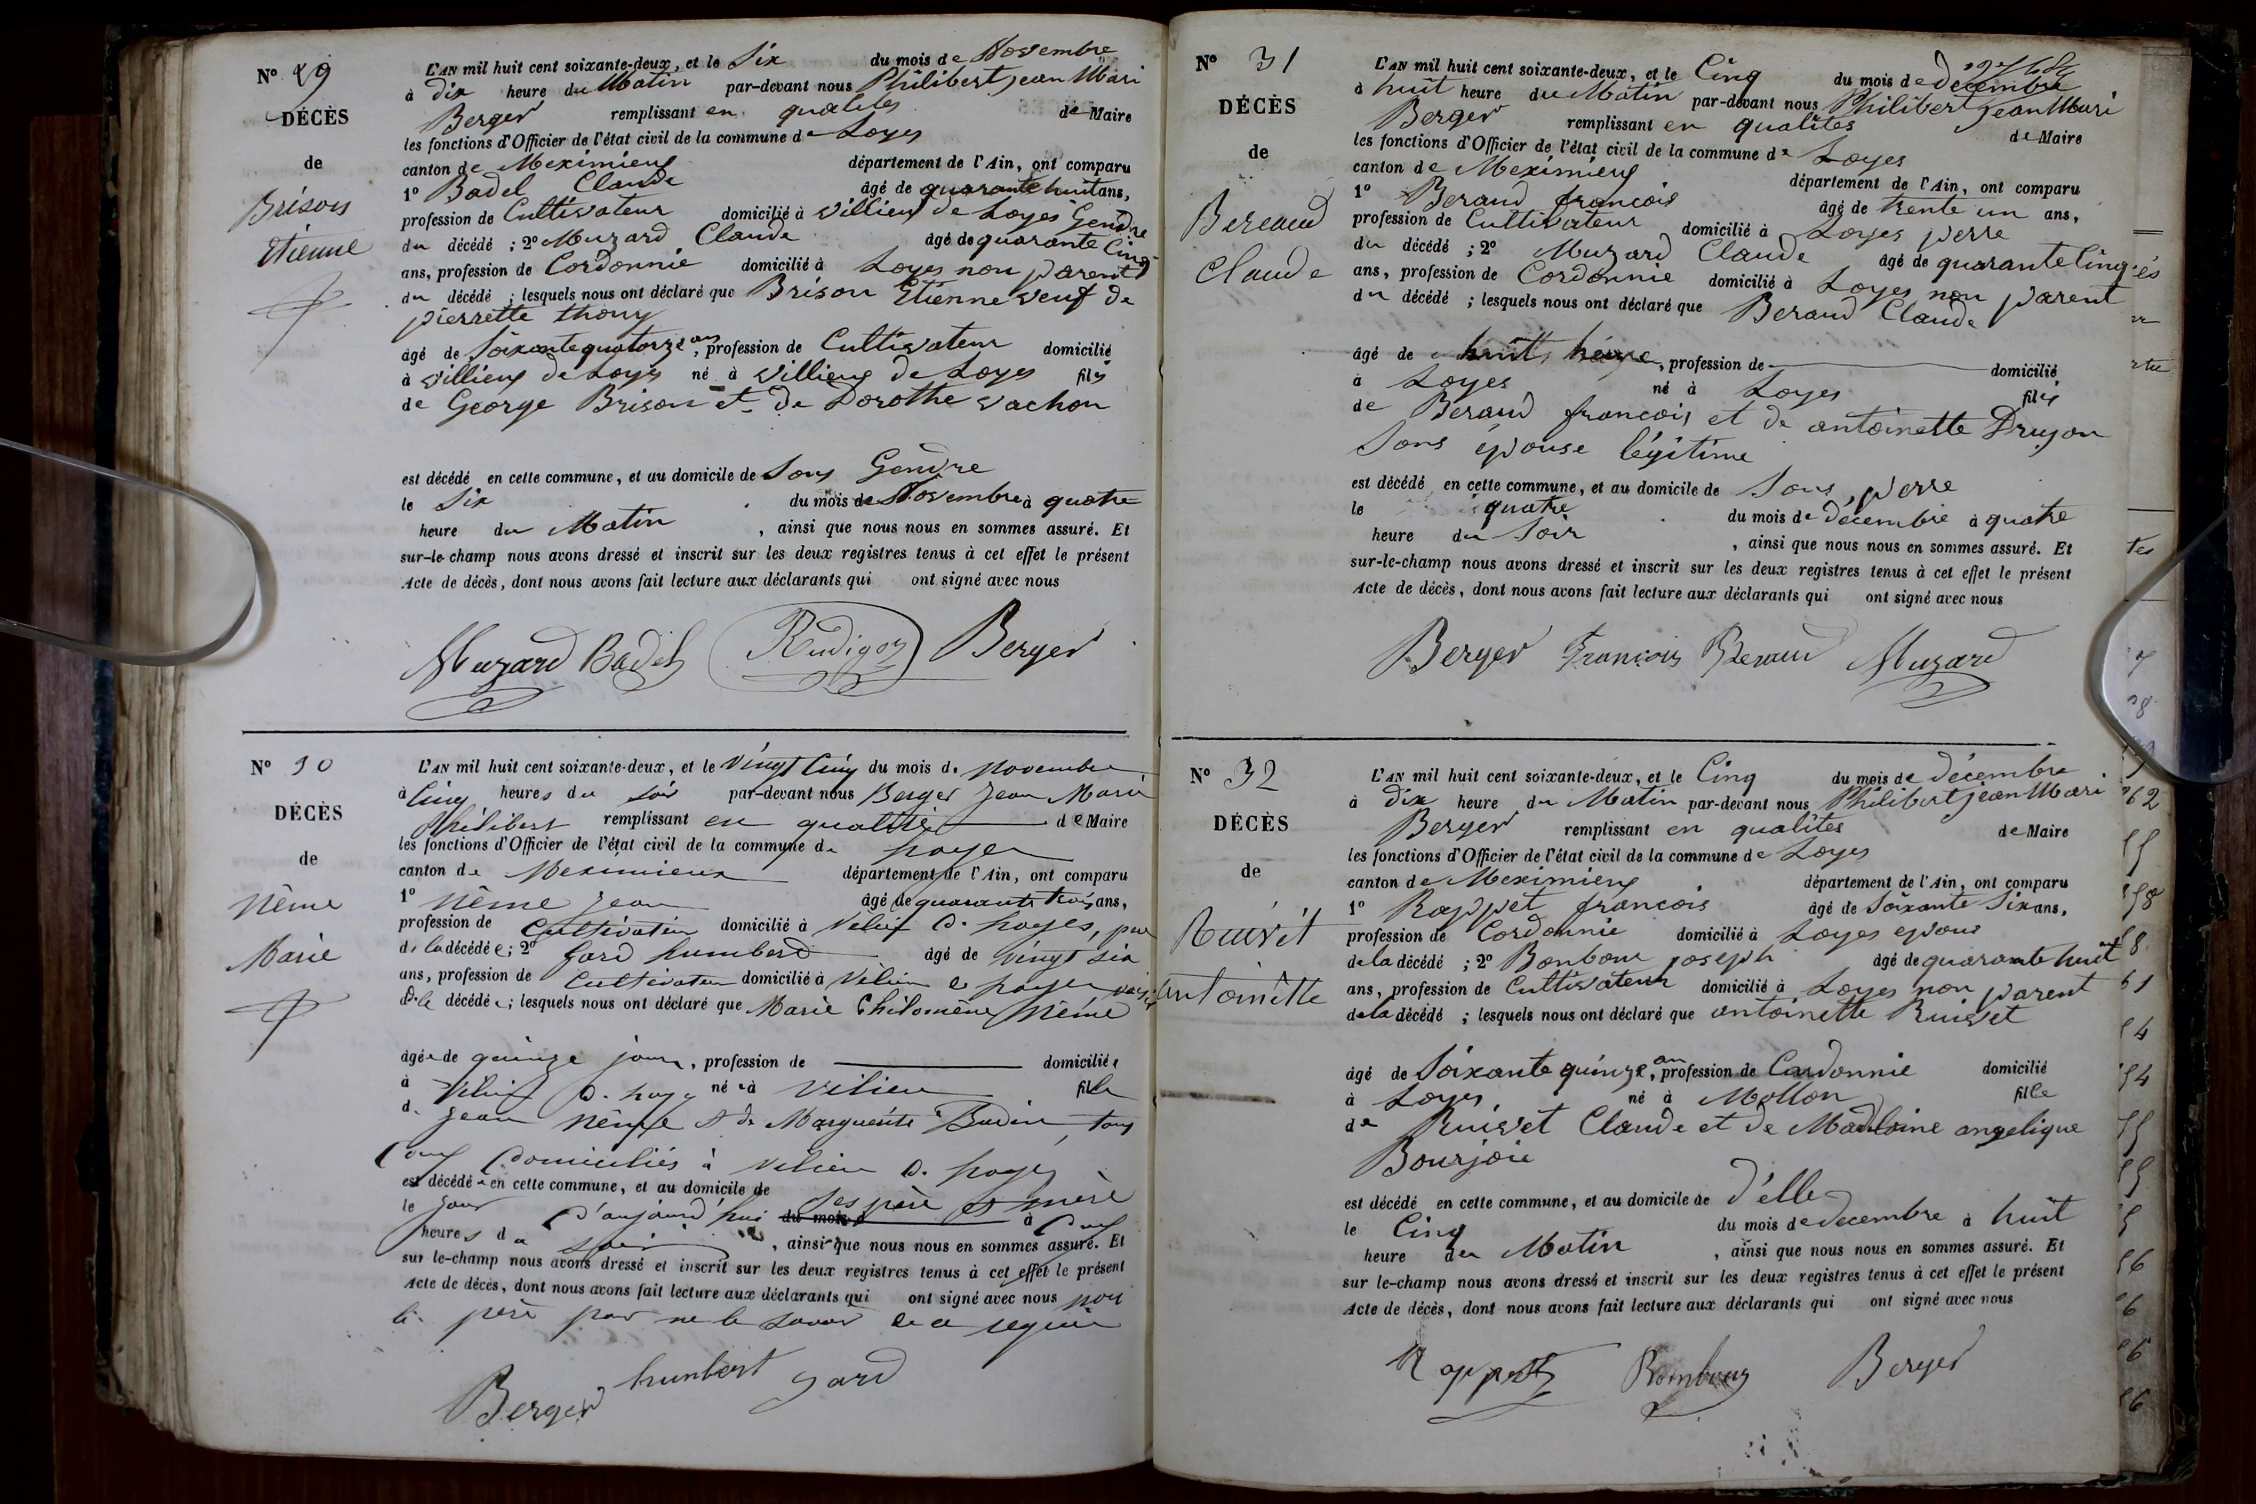 N° 29
DÉCÈS
de
Brison
Etienne
L'AN mil huit cent soixante-deux, et le Six du mois de Novembre
à dix heure du Matin par-devant nous Philibert jean Mari
Berger remplissant en qualites de Maire
les fonctions d'Officier de l'état civil de la commune de Loyes
canton de Meximieux département de l'Ain, ont comparu
1° Badel Claude âgé de quarante huit ans,
profession de Cultivateur domicilié à villieu de Loyes Gendre
du décédé ; 2° Muzard Claude âgé de quarante Cinq
ans, profession de Cordonnie domicilié à Loyes non parent
du décédé ; lesquels nous ont déclaré que Brison Etienne veuf de
pierrette thony
âgé de Soixante quatorze ans, profession de Cultivateur domicilié
à villieu de Loyes né à villieu de Loyes fils
de George Brison et de Dorothe vachon
est décédé en cette commune, et au domicile de Sons Gendre
le Six du mois de Novembre à quatre
heure du Matin , ainsi que nous nous en sommes assuré. Et
sur-le-champ nous avons dressé et inscrit sur les deux registres tenus à cet effet le présent
Acte de décès, dont nous avons fait lecture aux déclarants qui ont signé avec nous
Muzard Badel Rudigoz Berger
N° 30
DÉCÈS
de
Nême
Marie
L'AN mil huit cent soixante-deux, et le vingt Cinq du mois de novembre
à Cinq heures du soir par-devant nous Berger Jean Marie
Philibert remplissant en qualité de Maire
les fonctions d'Officier de l'état civil de la commune de Loyes
canton de Meximieux département de l'Ain, ont comparu
1° Nême Jean âgé de quarante trois ans,
profession de Cultivateur domicilié à Vilieu d. Loyes, père
de la décédée ; 2° Gard humbert âgé de vingt six
ans, profession de Cultivateur domicilié à Vilieu Loyes voisin
de la décédée ; lesquels nous ont déclaré que Marie Philomène Nême
âgée de quinze jours, profession de domiciliée
à Vilieu d. Loyes née à Vilieu fille
de Jean Nême & de Marguerite Badin, tous
domiciliés à Vilieu d. Loyes
est décédée en cette commune, et au domicile de ses père & mère
le jour d'aujourd'hui du mois d à Cinq
heures du soir , ainsi que nous nous en sommes assuré. Et
sur le-champ nous avons dressé et inscrit sur les deux registres tenus à cet effet le présent
Acte de décès, dont nous avons fait lecture aux déclarants qui ont signé avec nous non
le père pour ne le savoir de ce requis
Berger humbert gard
N° 31
DÉCÈS
de
Bereaud
Claude
L'AN mil huit cent soixante-deux, et le Cinq du mois de décembre
à huit heure du Matin par-devant nous Philibert jean Mari
Berger remplissant en qualites de Maire
les fonctions d'Officier de l'état civil de la commune de Loyes
canton de Meximieux département de l'Ain, ont comparu
1° Beraud francois âgé de trente un ans,
profession de Cultivateur domicilié à Loyes perre
du décédé ; 2° Muzard Claude âgé de quarante Cinq
ans, profession de Cordonnie domicilié à Loyes non parent
du décédé ; lesquels nous ont déclaré que Beraud Claude
âgé de huit heure, profession de domicilié
à Loyes né à Loyes fils
de Beraud francois et de antoinette Drujon
Sons épouse légitime
est décédé en cette commune, et au domicile de Sons perre
le quatre du mois de décembre à quatre
heure du Soir , ainsi que nous nous en sommes assuré. Et
sur-le-champ nous avons dressé et inscrit sur les deux registres tenus à cet effet le présent
Acte de décès, dont nous avons fait lecture aux déclarants qui ont signé avec nous
Berger François Beraud Muzard
N° 32
DÉCÈS
de
Ruivet
antoinette
L'AN mil huit cent soixante-deux, et le Cinq du mois de décembre
à dix heure du Matin par-devant nous Philibert jean Mari
Berger remplissant en qualites de Maire
les fonctions d'Officier de l'état civil de la commune de Loyes
canton de Meximieux département de l'Ain, ont comparu
1° Rappet francois âgé de Soixante Six ans,
profession de Cordonnie domicilié à Loyes epous
de la décédé ; 2° Bonbour joseph âgé de quarante huit
ans, profession de Cultivateur domicilié à Loyes non parent
de la décédé ; lesquels nous ont déclaré que antoinette Ruivet
âgé de Soixante quinze an, profession de Cordonnie domicilié
à Loyes né à Mollon fille
de Ruivet Claude et de Madlaine angelique
Bourjoie
est décédé en cette commune, et au domicile de d'elle
le Cinq du mois de decembre à huit
heure du Matin , ainsi que nous nous en sommes assuré. Et
sur le-champ nous avons dressé et inscrit sur les deux registres tenus à cet effet le présent
Acte de décès, dont nous avons fait lecture aux déclarants qui ont signé avec nous
Rappet Bombour Berger